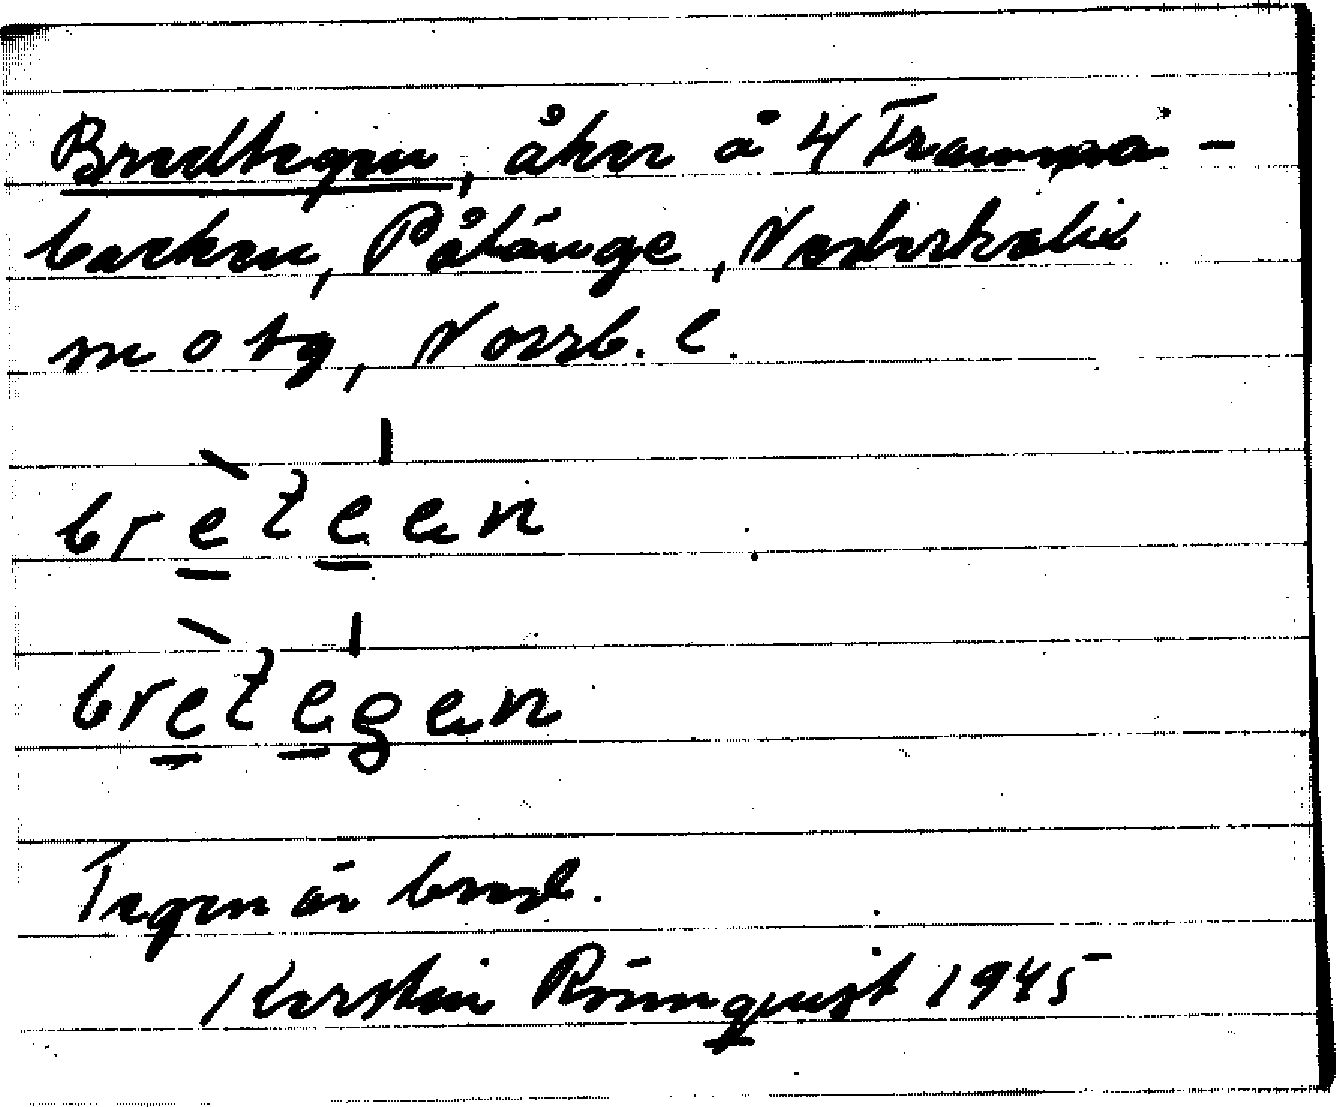 Bredtegen, åker å 4 Trannmo-
backen, Pålänge, Nederkalix
sn o tg, Norrb. l.
brèteen
brètegen
Tegen är bred.
Kerstin Rönnquist 1945